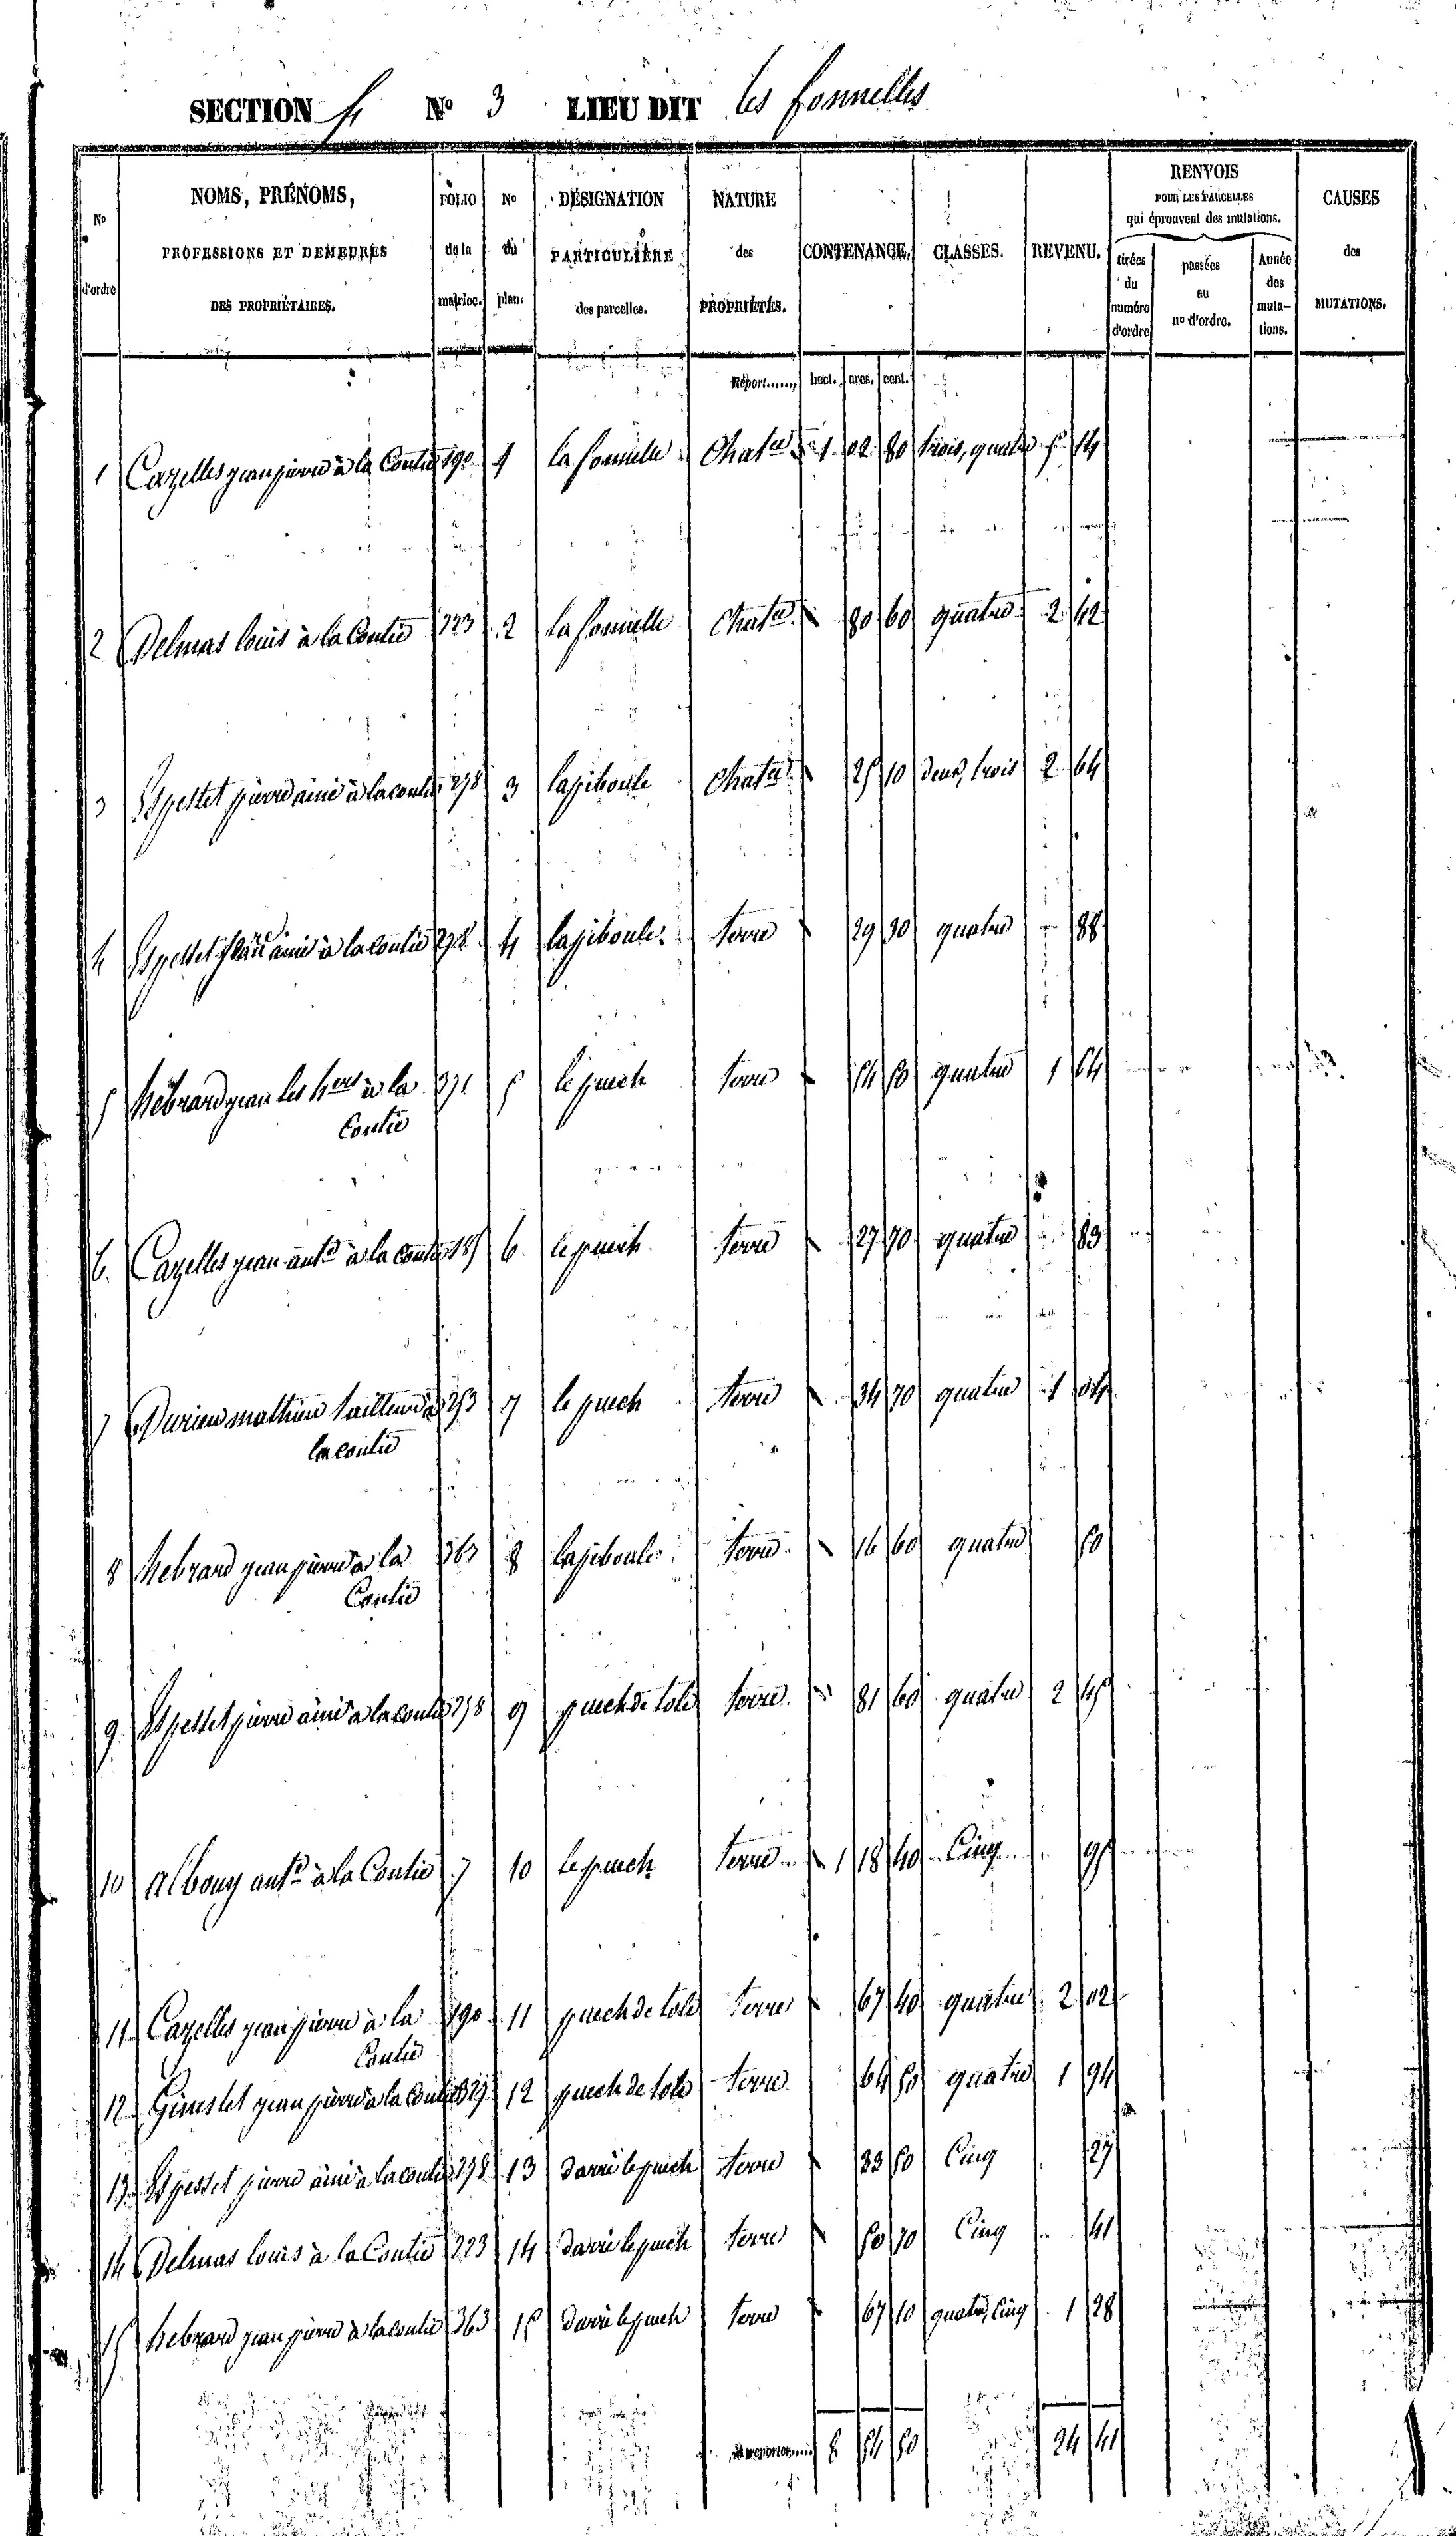 SECTION f N° 3 LIEU DIT les fonnelles
N° d'ordre
NOMS, PRÉNOMS,
PROFESSIONS ET DEMEURES
DES PROPRIÉTAIRES.
FOLIO de la matrice.
N° du plan.
DÉSIGNATION
PARTICULIÈRE
des parcelles.
NATURE
des
PROPRIÉTÉS.
CONTENANCE.
CLASSES.
REVENU.
RENVOIS
POUR LES PARCELLES
qui éprouvent des mutations.
tirées du numéro d'ordre
passées au n° d'ordre.
Année des mutations.
CAUSES
des
MUTATIONS.
Report......, hect. ares. cent.
1 Cazelles jean pierre à la Coutie 190 1 la fonnelle Chat.ee 1 02 80 trois, quatre 5 14
2 Delmas louis à la Coutie 223 2 la fonnelle Chat.ee 80 60 quatre 2 42
3 Espestet pierre ainé à la coutie 298 3 la piboule Chat.ee 25 10 deux, trois 2 64
4 ainé à la coutie 298 4 la piboule terre 29 30 quatre 88
5 hébrard jean les h.ers à la 371 5 le puech terre 54 50 quatre 1 64
Coutie
6 Cazelles jean ant.e à la coutie 185 6 le puech terre 27 70 quatre 83
7 Durieu mathieu tailleur à 253 7 le puech terre 34 70 quatre 1 04
la coutie
8 hebrard jean pierre à la 363 8 la piboule terre 16 60 quatre 50
Coutie
9 Espestet pierre ainé à la coutie 298 9 puech de tole terre 81 60 quatre 2 45
10 Albouy ant.e à la Coutie 7 10 le puech terre 1 18 40 Cinq 95
11 Cazelles jean pierre à la 190 11 puech de tole terre 67 40 quatre 2 02
Coutie
12 Ginestet jean pierre à la Coutie 329 12 puech de tole terre 64 50 quatre 1 94
13 Espestet pierre ainé à la coutie 298 13 darré le puech terre 33 50 Cinq 27
14 Delmas louis à la Coutie 223 14 darré le puech terre 50 70 Cinq 41
15 hebrard jean pierre à la coutie 363 15 darré le puech terre 67 10 quatre, cinq 1 28
A reporter..... 8 54 50 24 41